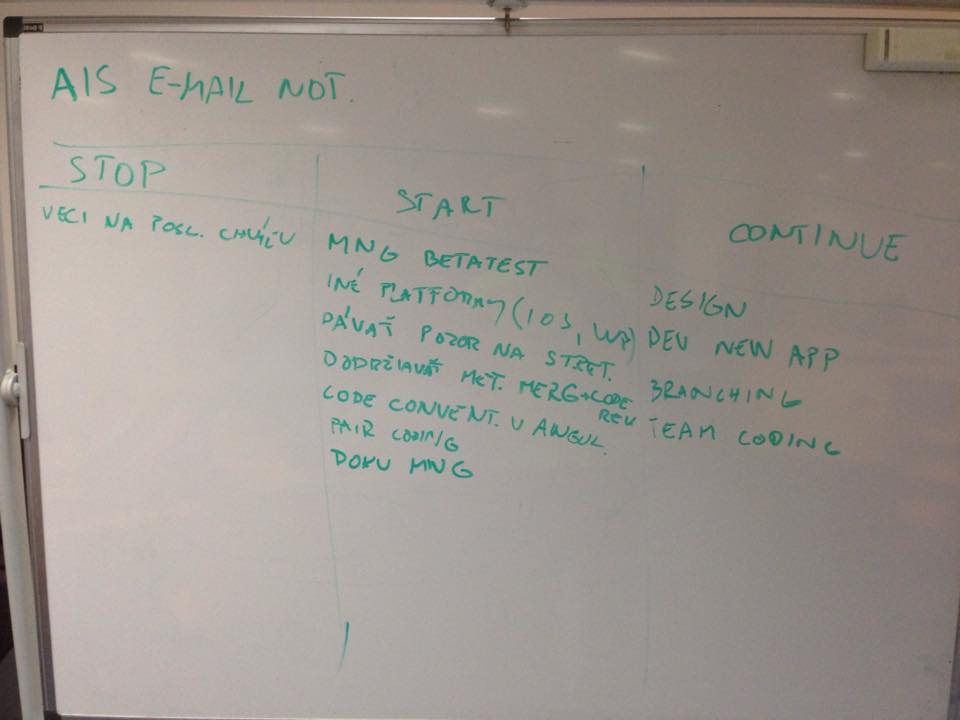 AIS E-MAIL NOT.
STOP
VECI NA POSL. CHVÍĽU
START
MNG BETATEST
INÉ PLATFORMY (IOS, WP)
DÁVAŤ POZOR NA STRET.
DODRŽIAVAŤ MET. MERG+CODE
REV
CODE CONVENT. V ANGUL.
PAIR CODING
DOKU MNG
CONTINUE
DESIGN
DEV NEW APP
BRANCHING
TEAM CODING